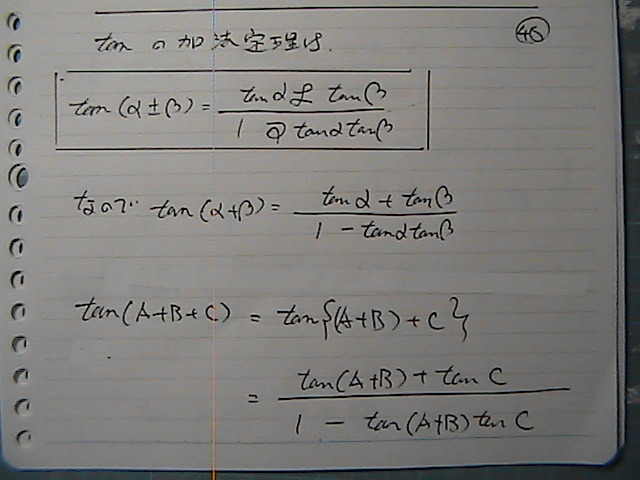 tan の加法定理は.
46
tan(α±β) = (tanα ± tanβ) / (1 ∓ tanα tanβ)
なので tan(α+β) = (tanα + tanβ) / (1 - tanα tanβ)
tan(A+B+C) = tan{(A+B)+C}
= (tan(A+B) + tan C) / (1 - tan(A+B) tan C)